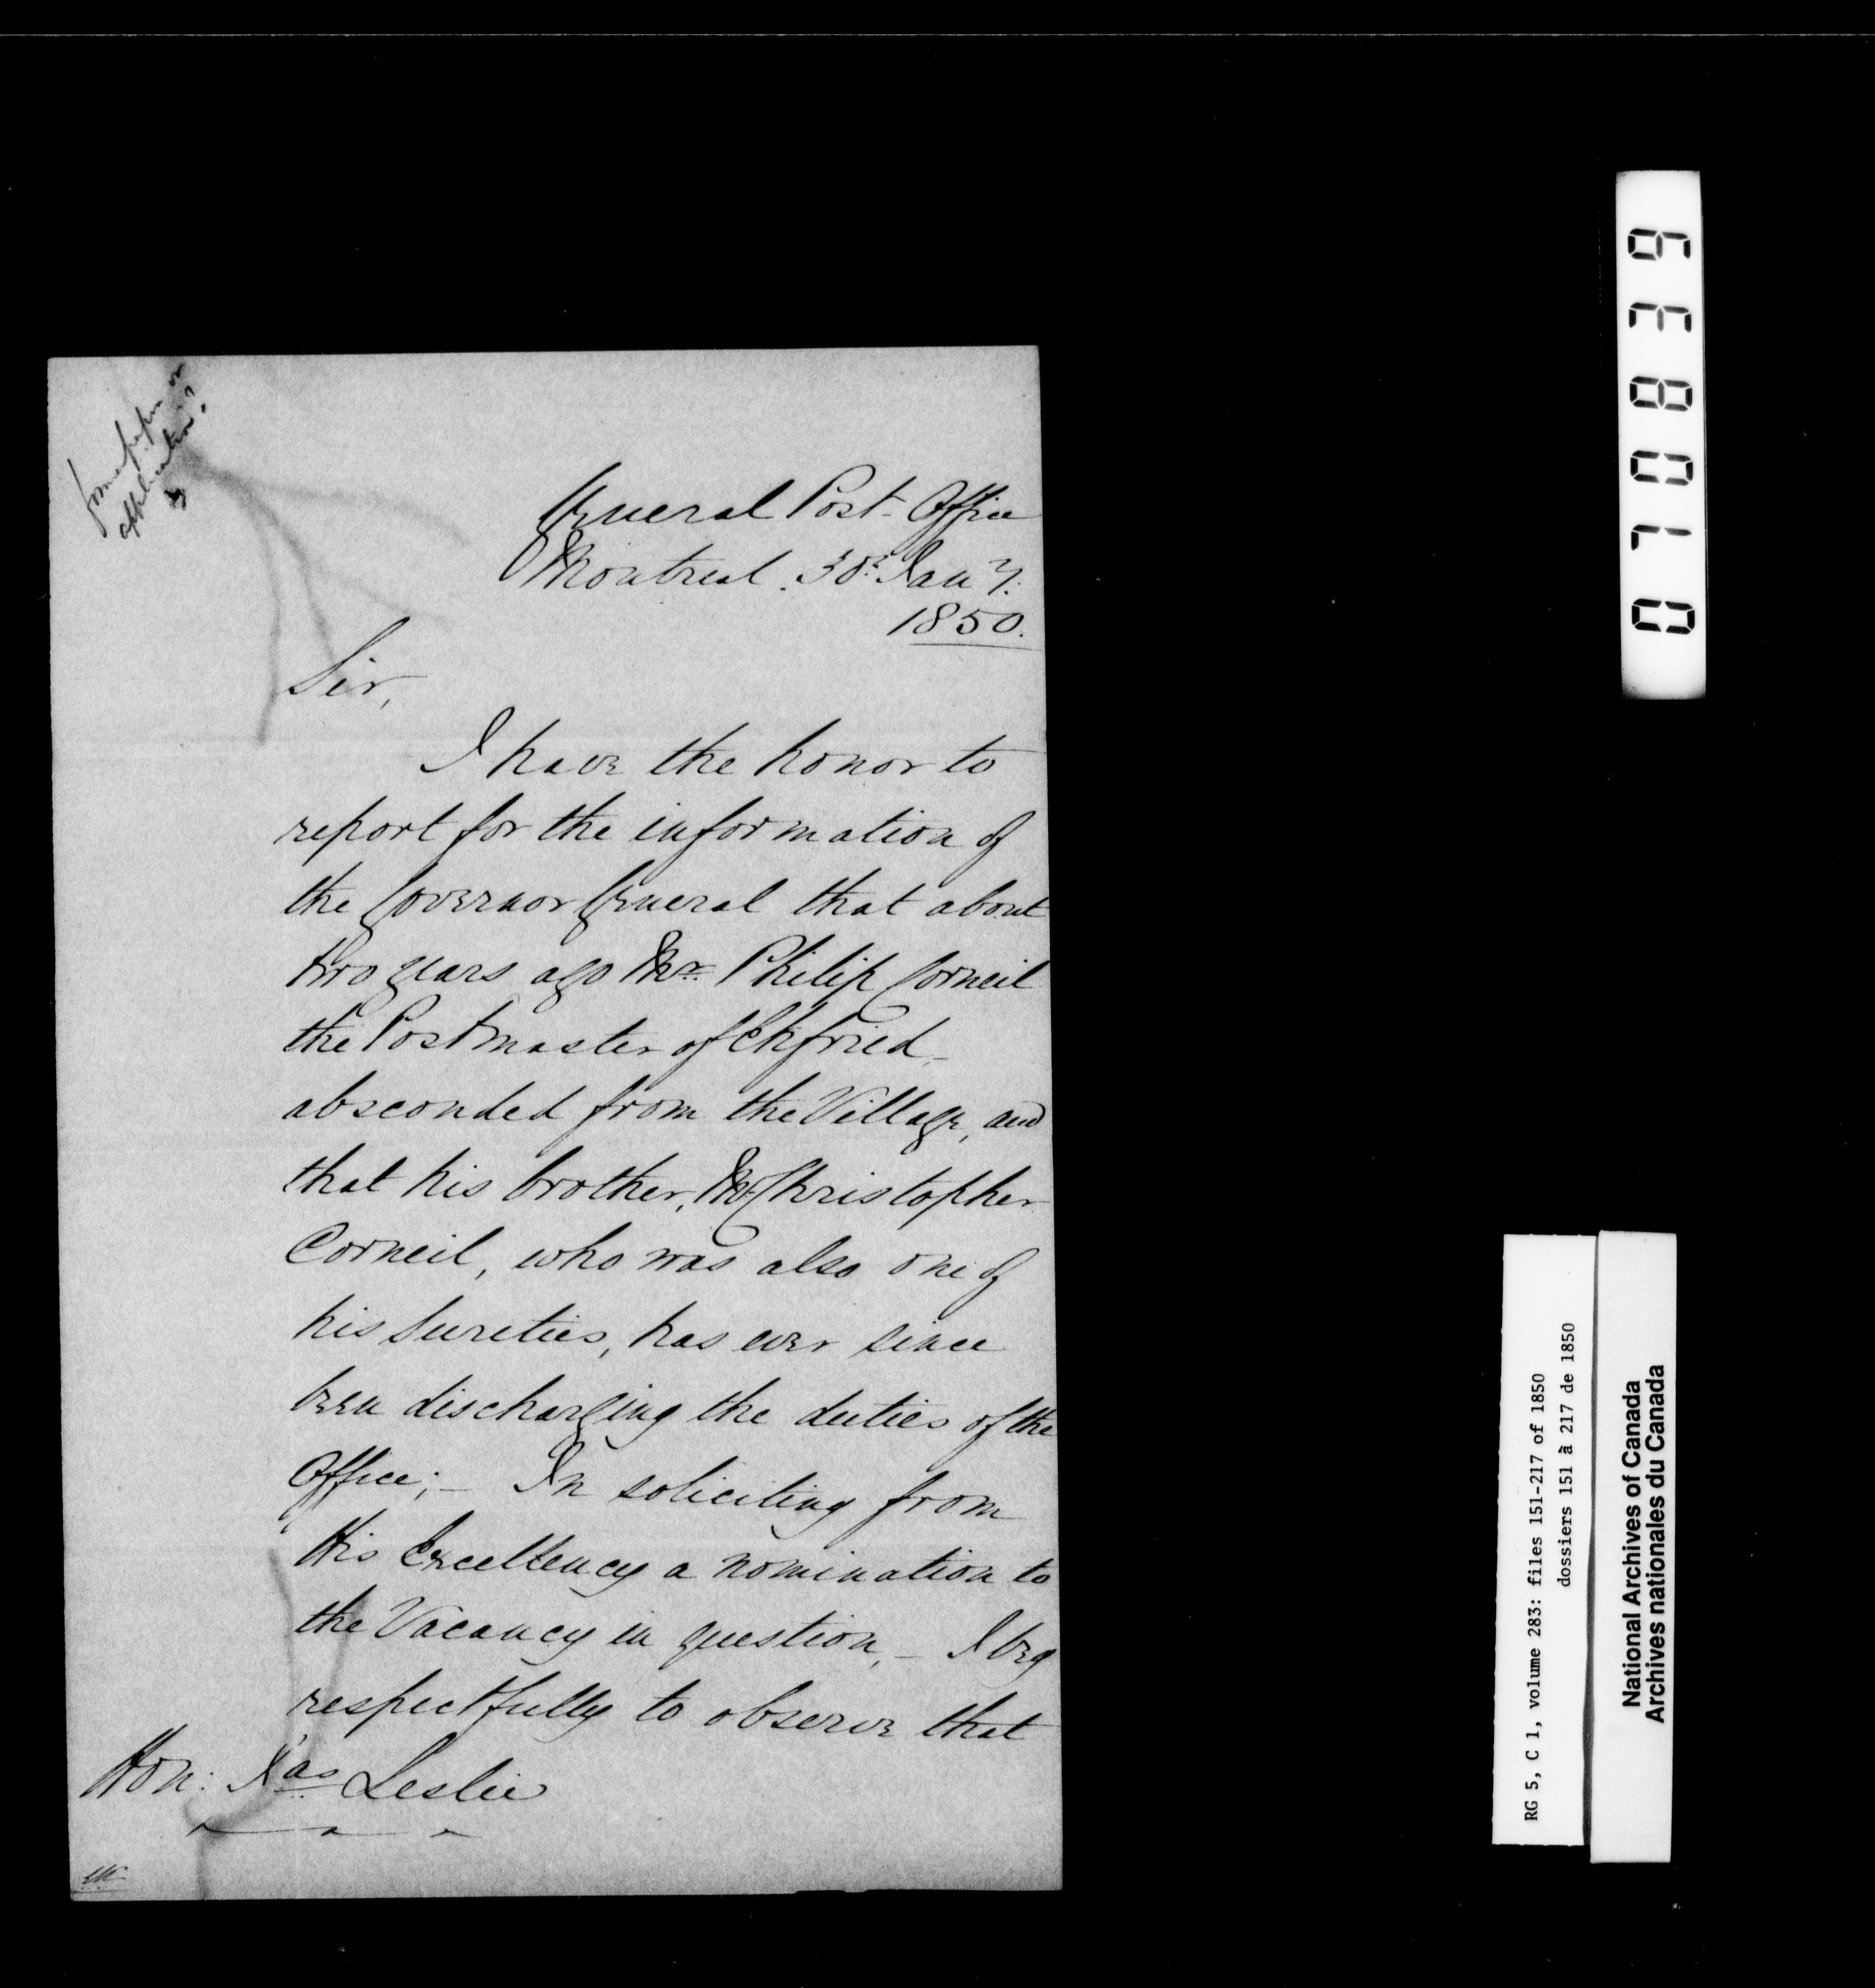 former paper or
application?
General Post-Office
Montreal. 30th Jany.
1850.
Sir,
I have the honor to
report for the information of
the Governor General that about
two years ago Mr. Philip Corneil
the Postmaster of Ekfried
absconded from the Village, and
that his brother, Mr Christopher
Corneil, who was also one of
his Sureties, has ever since
been discharging the duties of the
Office;- In soliciting from
His Excellency a nomination to
the Vacancy in question,- I beg
respectfully to observe that
Hon: Jas Leslie
070839
RG 5, C 1, volume 283: files 151-217 of 1850
dossiers 151 à 217 de 1850
National Archives of Canada
Archives nationales du Canada